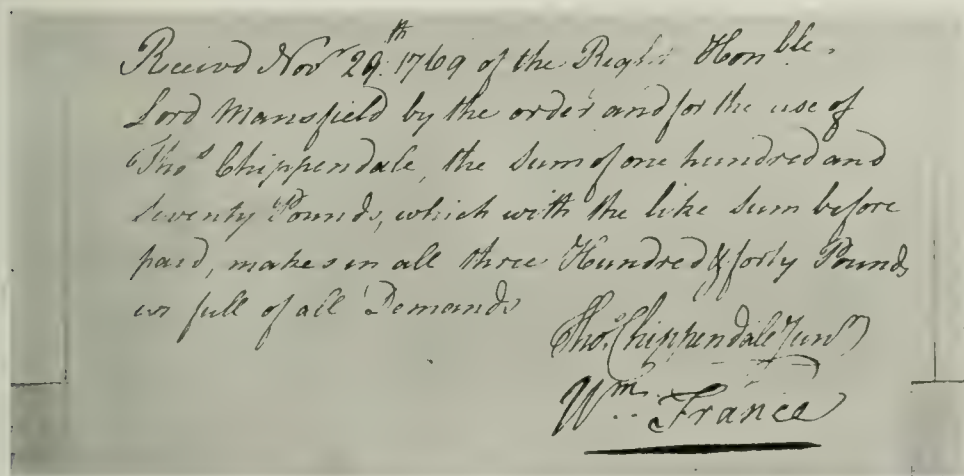 Receivd Novr 29th 1769 of the Right Honble
Lord Mansfield by the order and for the use of
Thos Chippendale, the Sum of one hundred and
Seventy Pounds, which with the like Sum before
paid, makes in all three Hundred & forty Pounds
in full of all Demands
Thos. Chippendale Junr
Wm. France